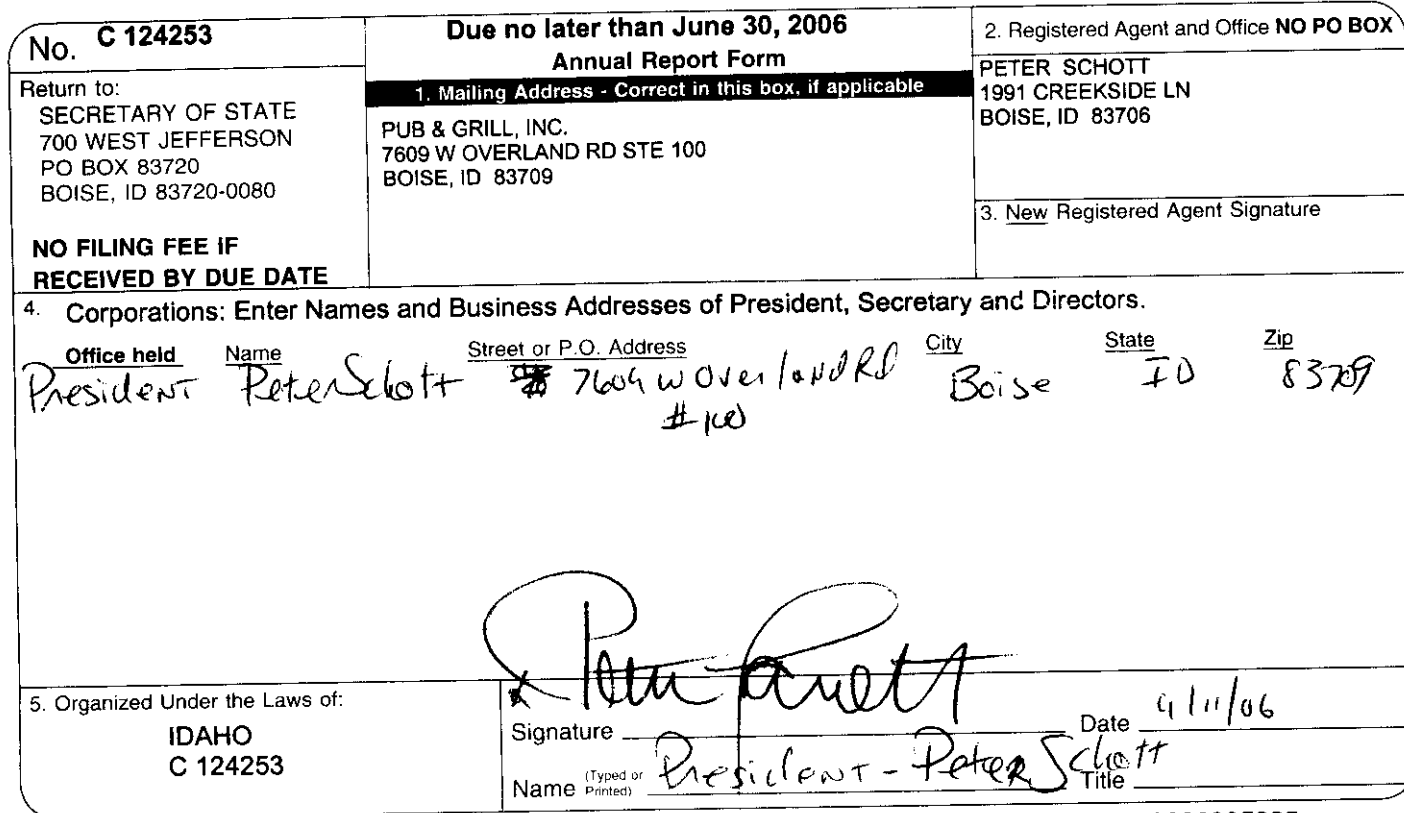 No. C 124253
Return to:
SECRETARY OF STATE
700 WEST JEFFERSON
PO BOX 83720
BOISE, ID 83720-0080
NO FILING FEE IF
RECEIVED BY DUE DATE
Due no later than June 30, 2006
Annual Report Form
1. Mailing Address - Correct in this box, if applicable
PUB & GRILL, INC.
7609 W OVERLAND RD STE 100
BOISE, ID 83709
2. Registered Agent and Office NO PO BOX
PETER SCHOTT
1991 CREEKSIDE LN
BOISE, ID 83706
3. New Registered Agent Signature
4. Corporations: Enter Names and Business Addresses of President, Secretary and Directors.
Office held Name Street or P.O. Address City State Zip
President Peter Schott 7609 W Overland Rd Boise ID 83709
#100
5. Organized Under the Laws of:
IDAHO
C 124253
Signature Date 4/11/06
Name (Typed or Printed) President - Peter Schott Title